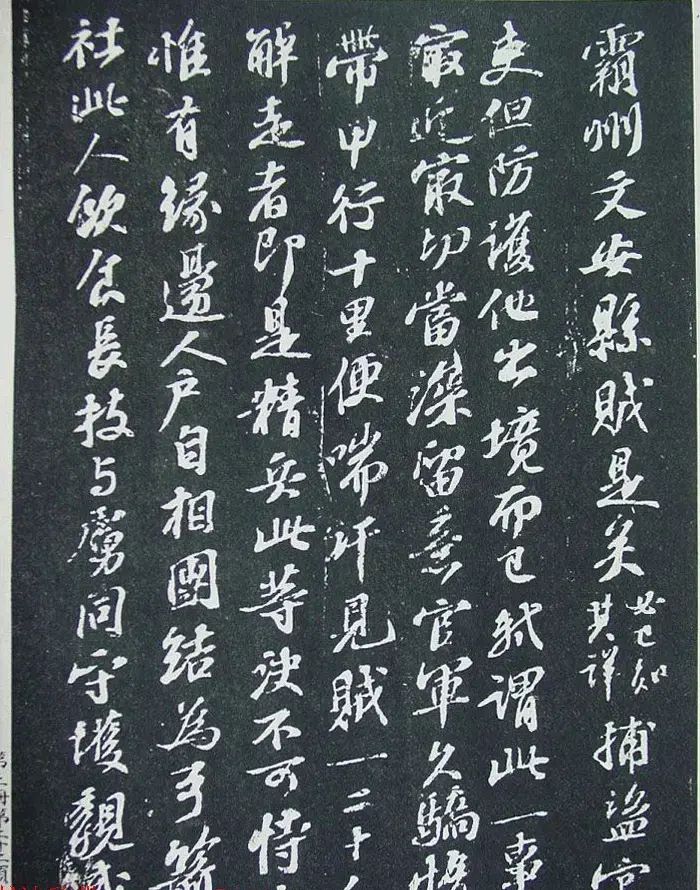 霸州文安縣賊是矣必已知其詳捕盜官
吏但防護他出境而已軾謂此一事
最近最切當深留意官軍久驕惰
帶甲行十里便喘汗見賊一二十
解走者即是精兵此等決不可恃
惟有緣邊人戶自相團結為弓箭
社此人飲食長技与虜同守墳親戚